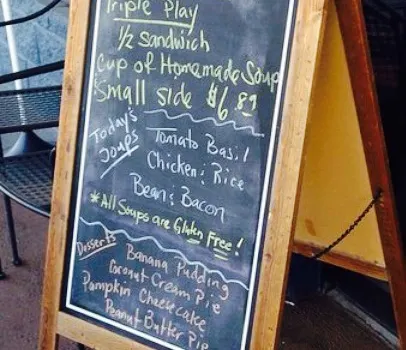 Triple Play
1/2 Sandwich
Cup of Homemade Soup
Small side $6.89
Today's
Soups
Tomato Basil
Chicken & Rice
Bean & Bacon
*All Soups are Gluten Free!
Desserts
Banana Pudding
Coconut Cream Pie
Pumpkin Cheesecake
Peanut Butter Pie